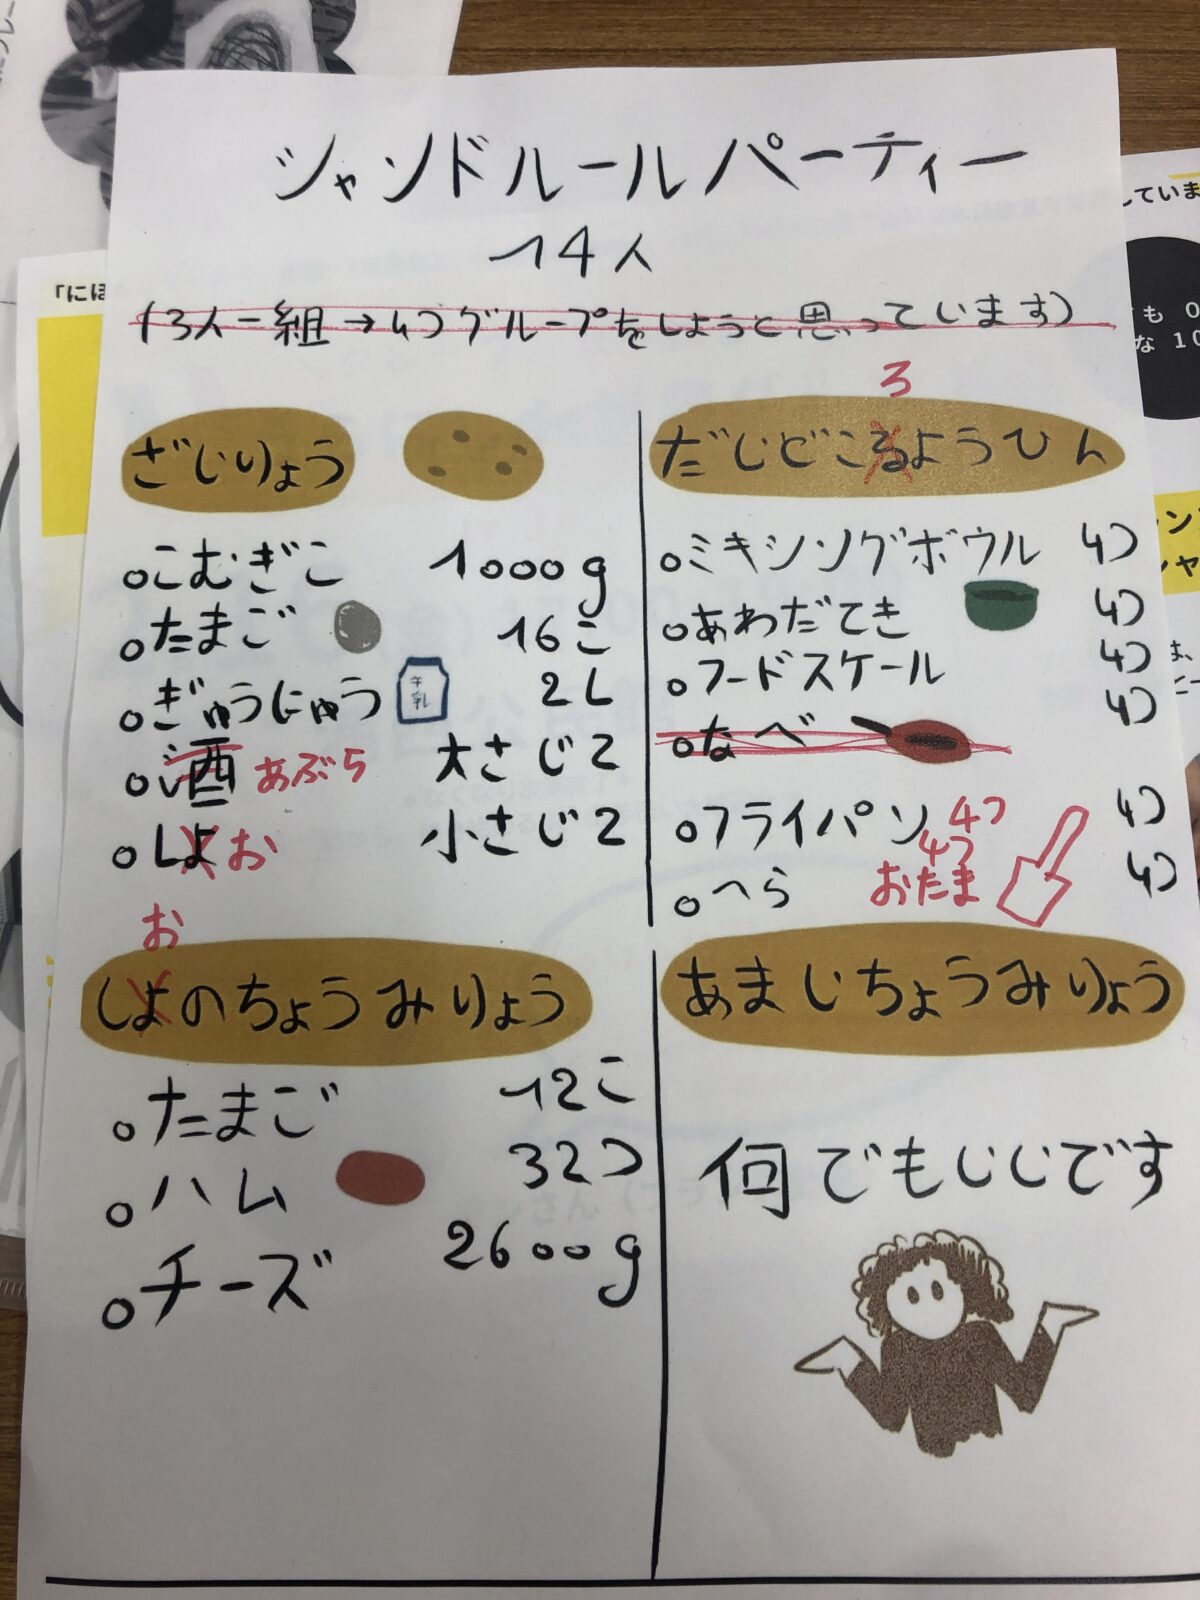 シャンドルールパーティー
14人
(3人一組→4つグループをしようと思っています)
ざじりょう
こむぎこ 1000g
たまご 16こ
ぎゅうにゅう 牛乳 2L
酒 あぶら 大さじ2
しよ お 小さじ2
3
だじどころようひん
ミキシングボウル 4つ
あわだてき 4つ
フードスケール 4つ
なべ 4つ
フライパン 4つ 4つ
へら 4つ おたま 4つ
お
しよのちょうみりょう
たまご 12こ
ハム 32つ
チーズ 2600g
あまじちょうみりょう
何でもじじです
「にほ
していま
も 0
な 10